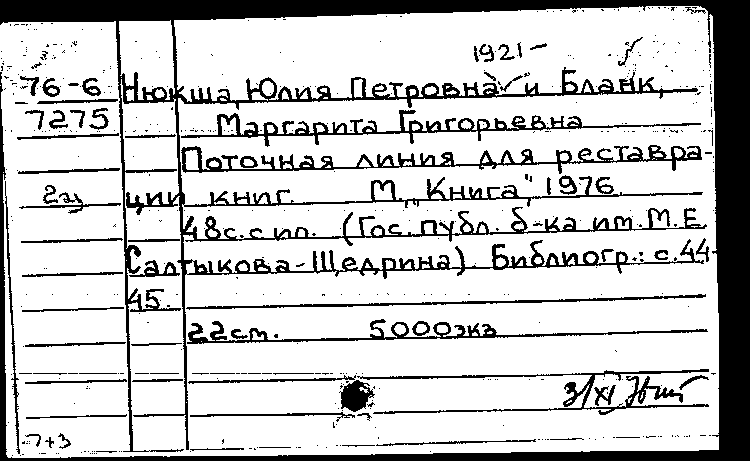 1921-
76-6 Нюкша, Юлия Петровна и Бланк,
7275 Маргарита Григорьевна
Поточная линия для реставра-
2 эк ции книг. М., „Книга", 1976.
48с. с ил. (Гос. публ. б-ка им. М.Е.
Салтыкова-Щедрина). Библиогр.: с.44-
45.
22см. 5000экз
3/XI
7+3